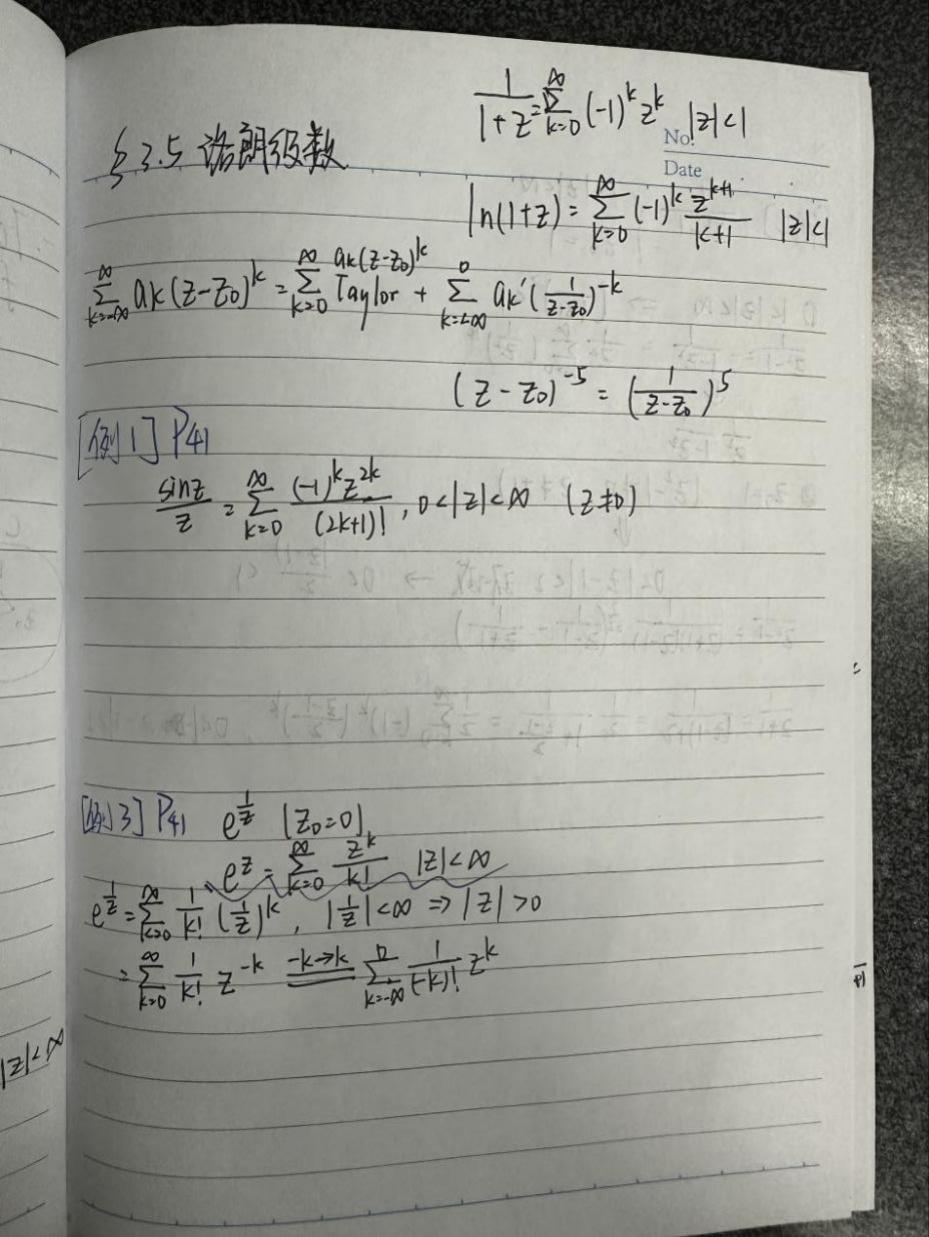 1/(1+z) = ∑_{k=0}^{∞} (-1)^k z^k |z|<1
No.
§3.5 洛朗级数
Date
ln(1+z) = ∑_{k=0}^{∞} (-1)^k z^{k+1}/(k+1) |z|<1
∑_{k=-∞}^{∞} ak(z-z0)^k = ∑_{k=0}^{∞} ak(z-z0)^k Taylor + ∑_{k=-∞}^{0} ak'(1/(z-z0))^{-k}
(z-z0)^{-5} = (1/(z-z0))^5
[例1] P41
sinz/z = ∑_{k=0}^{∞} (-1)^k z^{2k}/(2k+1)!, 0<|z|<∞ (z≠0)
[例3] P41 e^{1/z} [z0=0]
e^z = ∑_{k=0}^{∞} z^k/k! |z|<∞
e^{1/z} = ∑_{k=0}^{∞} 1/k! (1/z)^k, |1/z|<∞ ⇒ |z|>0
= ∑_{k=0}^{∞} 1/k! z^{-k} =(-k→k)= ∑_{k=-∞}^{0} 1/(-k)! z^k
|z|<∞